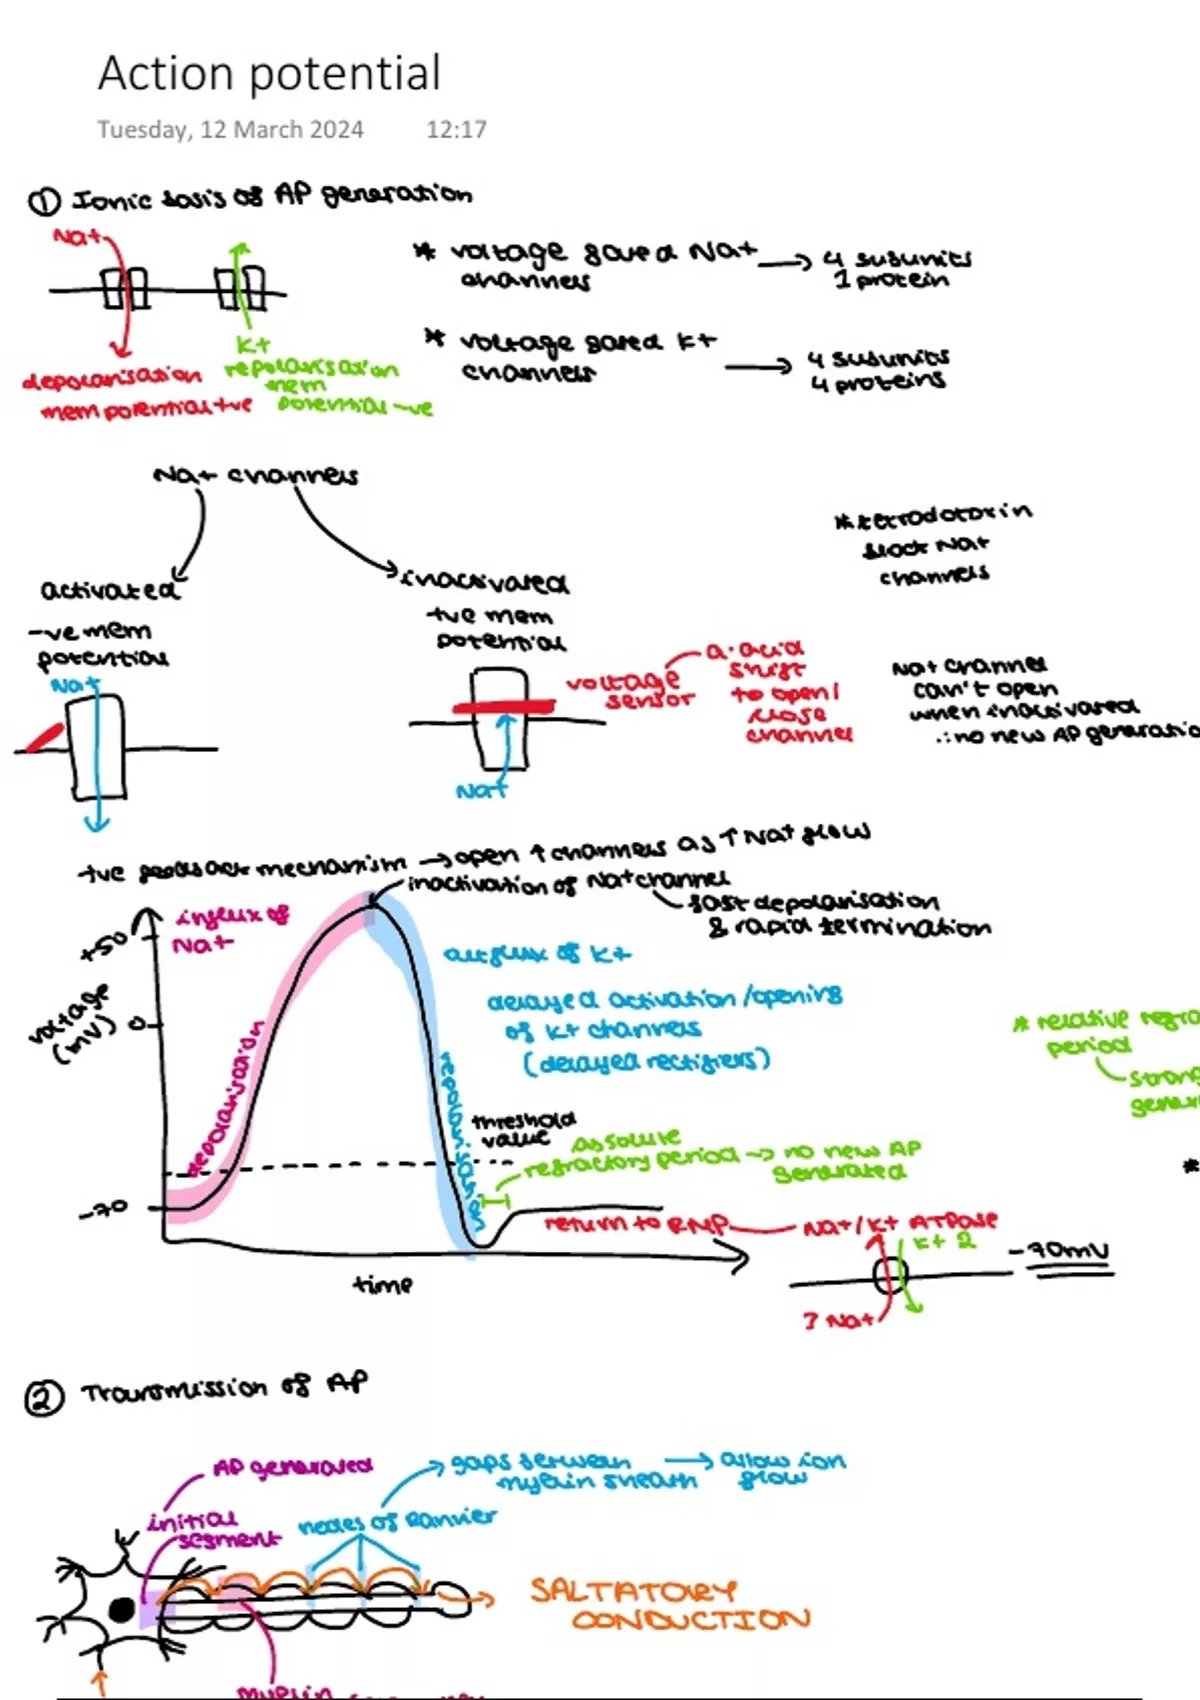 Action potential
Tuesday, 12 March 2024 12:17
① Ionic basis of AP generation
Na+
K+
depolarisation
mem potential +ve
repolarisation
mem
potential -ve
* voltage gated Na+
channels
→ 4 subunits
1 protein
* voltage gated K+
channels
→ 4 subunits
4 proteins
Na+ channels
activated
-ve mem
potential
Na+
inactivated
+ve mem
potential
voltage
sensor
a.acid
shift
to open/
close
channel
Na+
* tetrodotoxin
block Na+
channels
Na+ channel
can't open
when inactivated
∴ no new AP
+ve feedback mechanism → open ↑ channels as ↑ Na+ flow
inactivation of Na+ channel
fast depolarisation
& rapid termination
+50
0
-70
voltage
(mV)
influx of
Na+
depolarisation
outflux of K+
delayed activation/opening
of K+ channels
(delayed rectifiers)
repolarisation
threshold
value
Absolute
refractory period → no new AP
generated
* relative
period
return to RMP
Na+/K+ ATPase
K+ 2
-70mV
Na+
time
② Transmission of AP
AP generated
initial
segment
nodes of Ranvier
gaps between
myelin sheath
→ allow ion
flow
SALTATORY
CONDUCTION
myelin